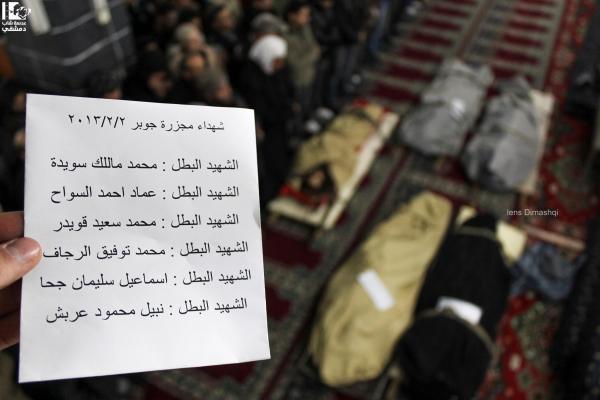 عدسة شاب
دمشقي
شهداء مجزرة جوبر ٢٠١٣/٢/٢
الشهيد البطل : محمد ماللك سويدة
الشهيد البطل : عماد احمد السواح
الشهيد البطل : محمد سعيد قويدر
الشهيد البطل : محمد توفيق الرجاف
الشهيد البطل : اسماعيل سليمان جحا
الشهيد البطل : نبيل محمود عربش
lens Dimashqi